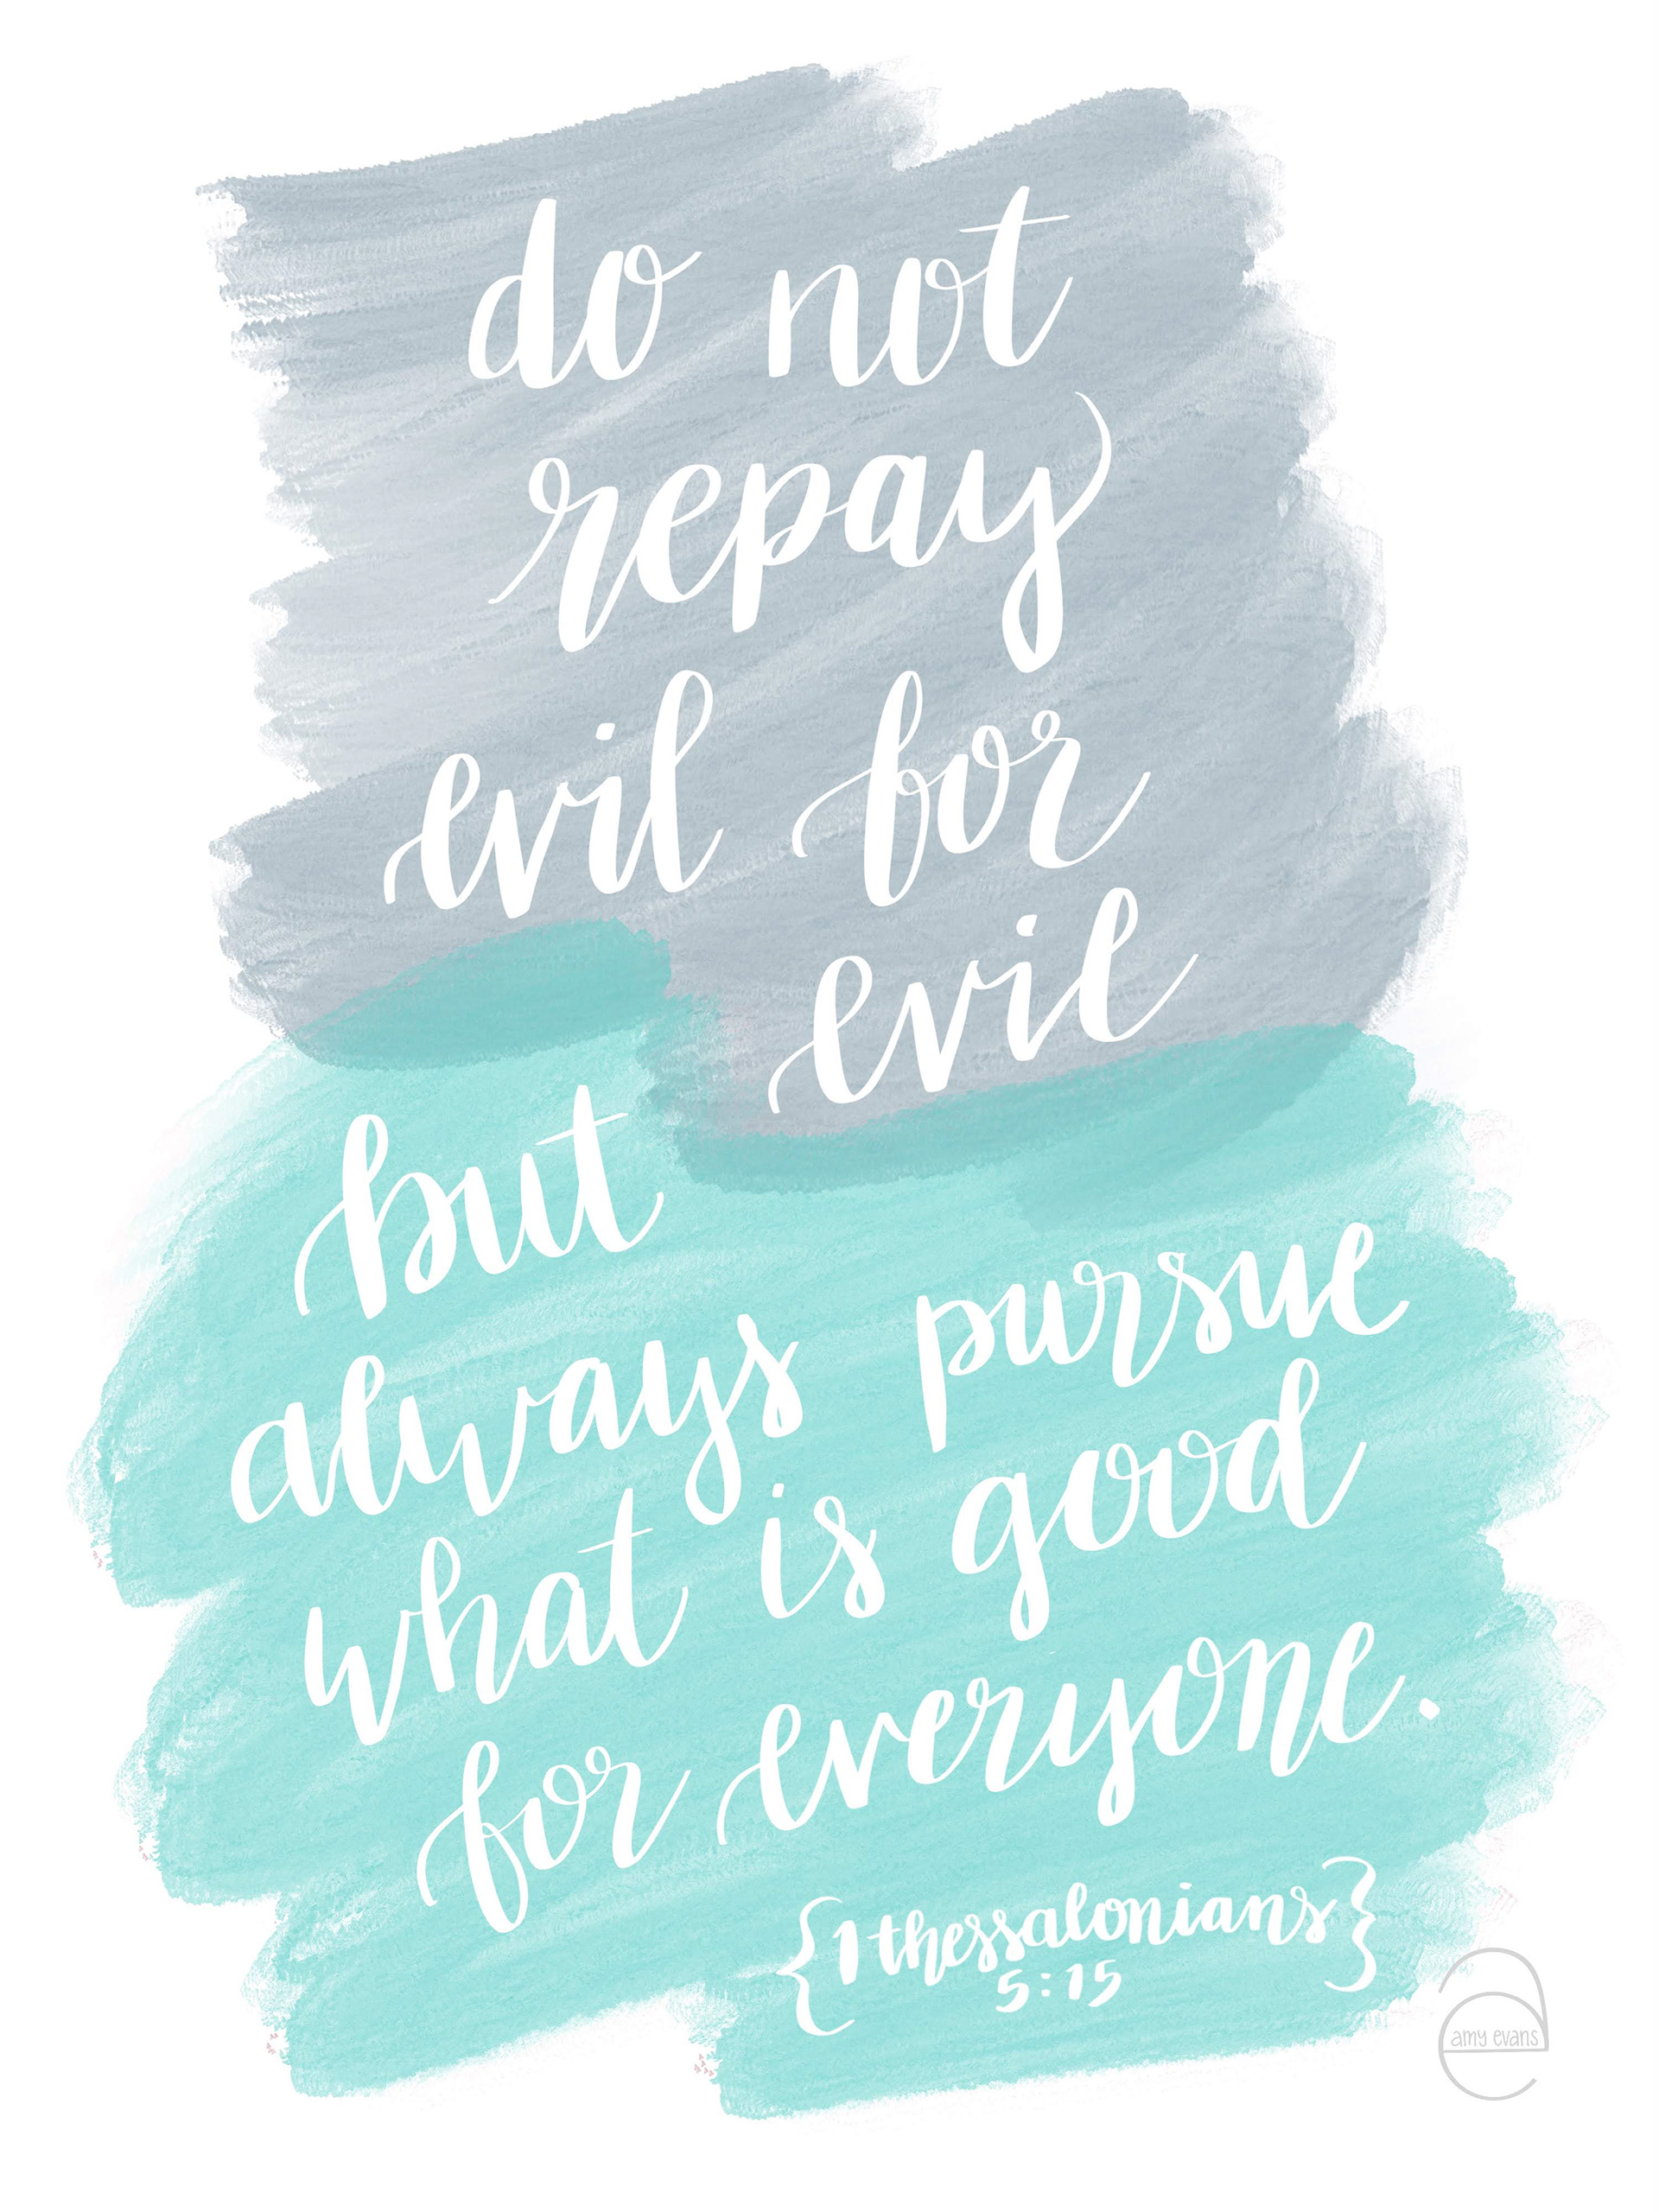 do not
repay
evil for
evil
but
always pursue
what is good
for everyone.
{1 thessalonians
5:15}
amy evans